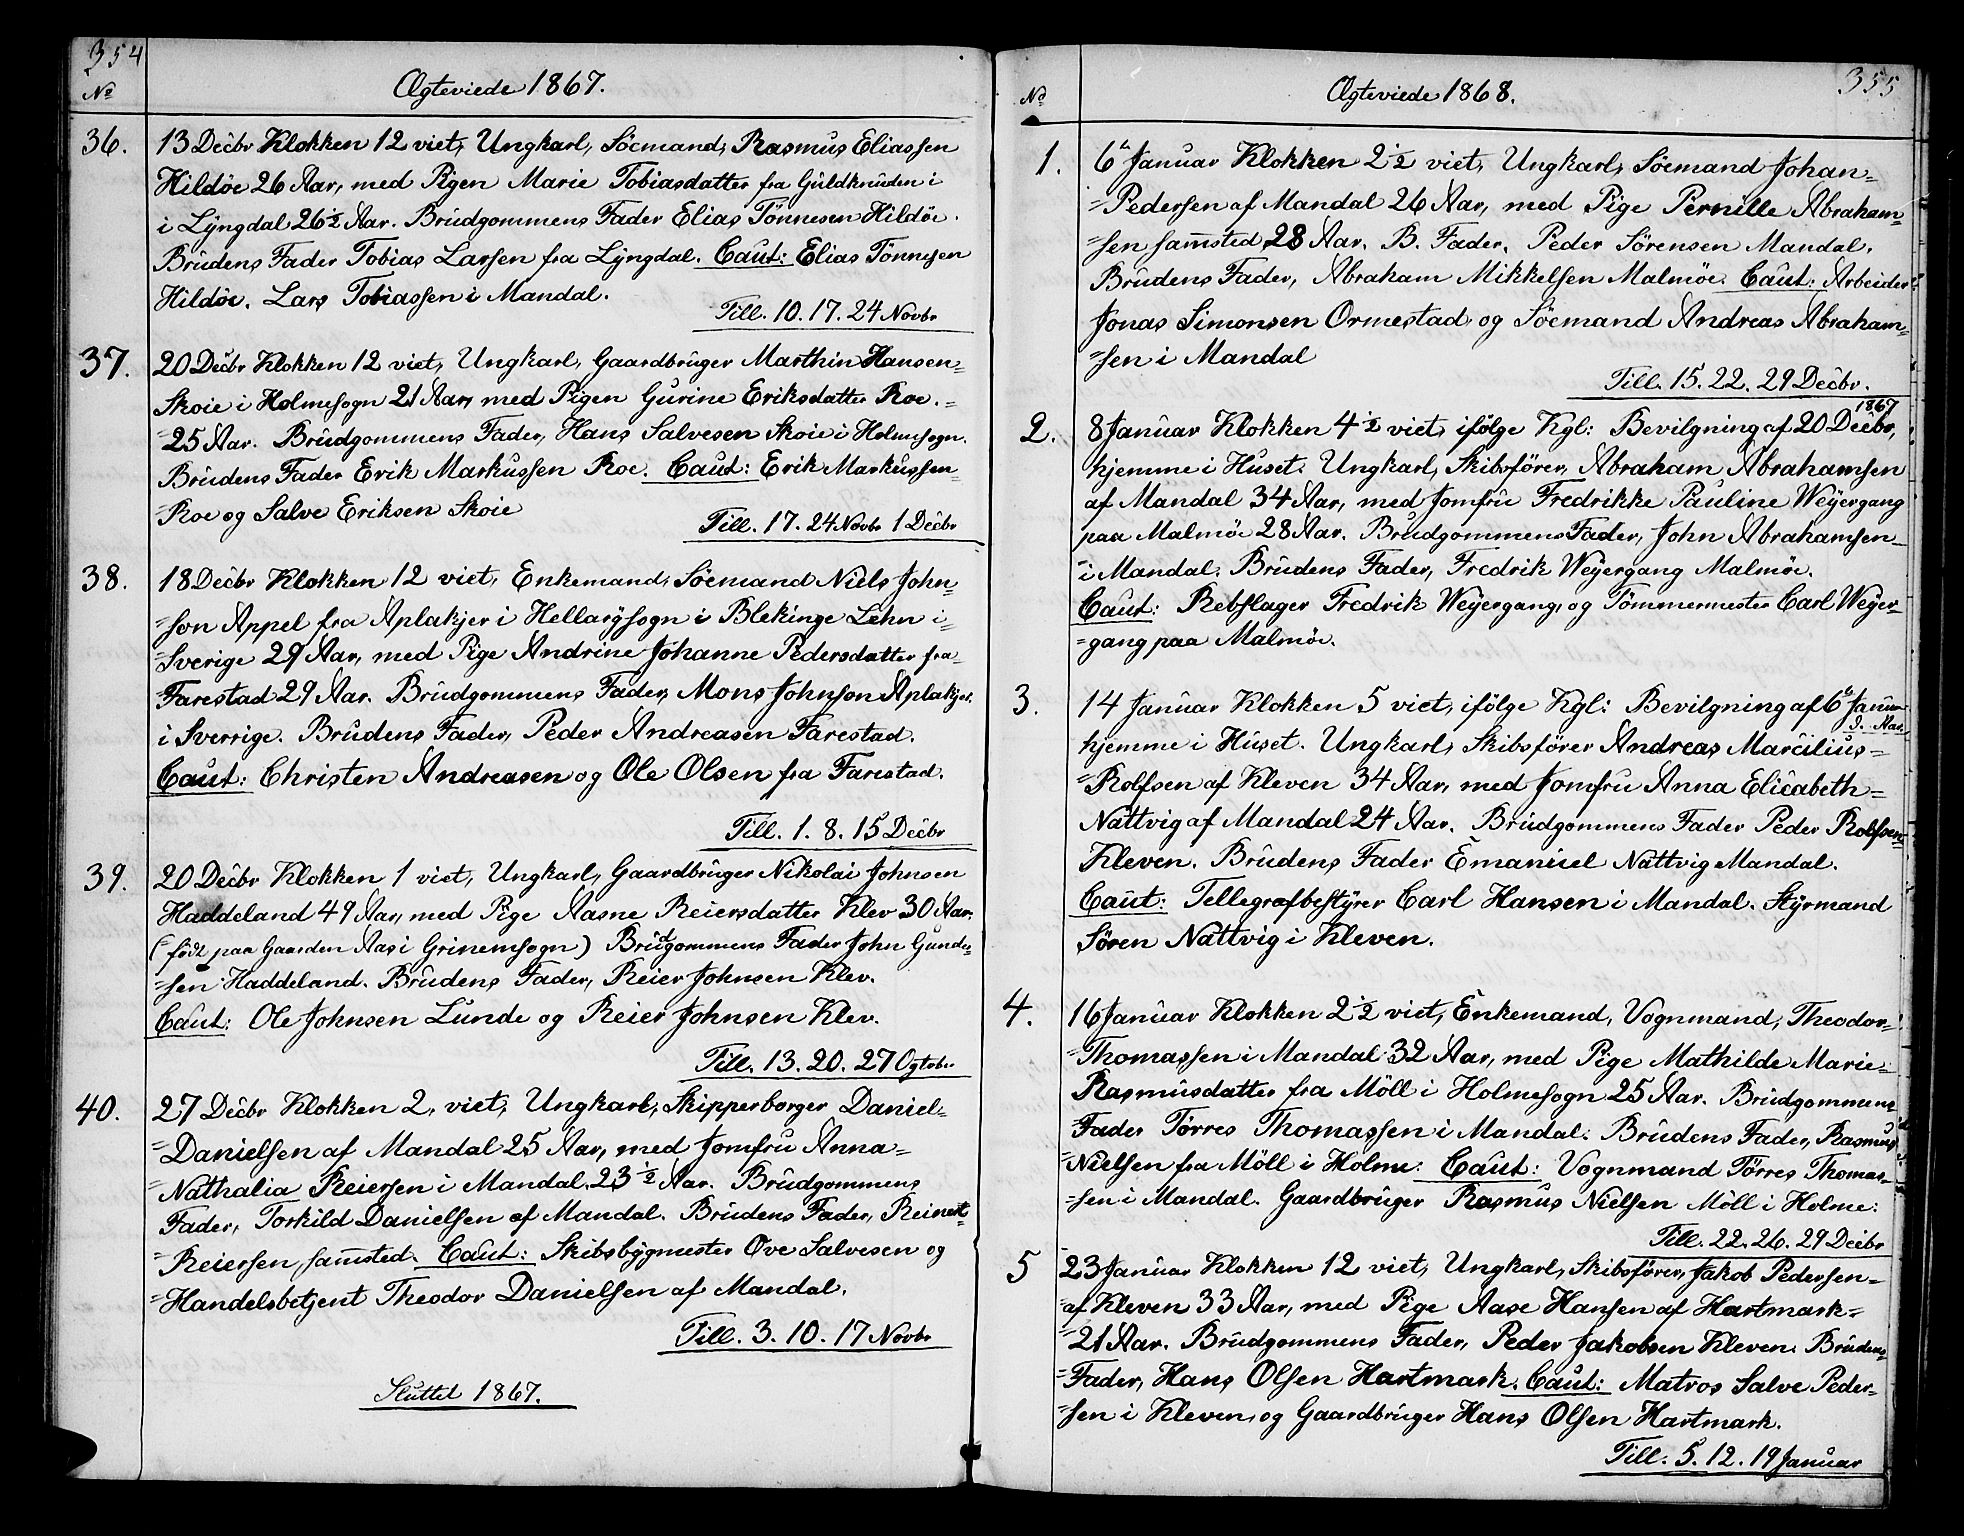 354
No
Ægteviede 1867.
36. 13 Decbr Klokken 12 viet, Ungkarl, Söemand, Rasmus Eliassen
Hildöe 26 Aar, med Pigen Marie Tobiasdatter fra Guldknuden i
i Lyngdal 26 1/2 Aar. Brudgommens Fader Elias Tönnesen Hildöe.
Brudens Fader Tobias Larsen fra Lyngdal. Caut: Elias Tönnesen
Hildöe. Lars Tobiassen i Mandal.
Till. 10. 17. 24 Novbr
37. 20 Decbr Klokken 12 viet, Ungkarl, Gaardbruger Marthin Hansen=
Skoie i Holmesogn 21 Aar, med Pigen Gurine Eriksdatter Roe.=
=25 Aar. Brudgommens Fader, Hans Salvesen Skoie i Holmesogn.
Brudens Fader Erik Markussen Roe. Caut: Erik Markussen=
=Roe og Salve Eriksen Skoie
Till. 17. 24 Novbr 1 Decbr
38. 18 Decbr Klokken 12 viet, Enkemand, Söemand Niels John=
=son Appel fra Aplakjer i Hellarysogn i Blekinge Lehn i=
=Sverige 29 Aar, med Pige Andrine Johanne Pedersdatter fra=
=Farestad 29 Aar. Brudgommens Fader, Mons Johnson Aplakjer.
i Sverrige. Brudens Fader, Peder Andreasen Farestad.
Caut: Christen Andreasen og Ole Olsen fra Farestad.
Till. 1. 8. 15 Decbr
39. 20 Decbr Klokken 1 viet, Ungkarl, Gaardbruger Nikolai Johnsen
Haddeland 49 Aar, med Pige Aasne Reiersdatter Klev 30 Aar.
(född paa Gaarden Aas i Grinemsogn) Brudgommens Fader John Gunder=
=sen Haddeland. Brudens Fader, Reier Johnsen Klev.
Caut: Ole Johnsen Lunde og Reier Johnsen Klev.
Till. 13. 20. 27 Ogtobr
40. 27 Decbr Klokken 2, viet, Ungkarl, Skipperborger Daniel=
=Danielsen af Mandal 25 Aar, med Jomfru Anna=
=Nathalia Reiersen i Mandal. 23 1/2 Aar. Brudgommens
Fader, Torkild Danielsen af Mandal. Brudens Fader, Reinert=
=Reiersen, samsted. Caut: Skibsbygmester Ove Salvesen og
=Handelsbetjent Theodor Danielsen af Mandal.
Till. 3. 10. 17 Novbr
Sluttet 1867.
355
No
Ægteviede 1868.
1. 6te Januar Klokken 2 1/2 viet, Ungkarl, Söemand Johan=
=Pedersen af Mandal 26 Aar, med Pige Pernille Abraham=
=sen samsted 28 Aar. B. Fader. Peder Sörensen Mandal.
Brudens Fader, Abraham Mikkelsen Malmöe. Caut: Arbeider
Jonas Simonsen Ormestad og Söemand Andreas Abraham=
=sen i Mandal
Till. 15. 22. 29 Decbr.
1867
2. 8 Januar Klokken 4 1/2 viet, ifölge Kgl: Bevilgning af 20 Decbr,
hjemme i Huset. Ungkarl, Skibsförer, Abraham Abrahamsen
af Mandal 34 Aar, med Jomfru Fredrikke Pauline Weyergang
paa Malmöe 28 Aar. Brudgommens Fader, John Abrahamsen=
=i Mandal. Brudens Fader, Fredrik Weyergang Malmöe.
Caut: Rebslager Fredrik Weyergang, og Tömmermester Carl Weyer=
=gang paa Malmöe.
3. 14 Januar Klokken 5 viet, ifölge Kgl: Bevilgning af 6te Januar
d. Aar
hjemme i Huset. Ungkarl, Skibsförer Andreas Marcilius=
=Rolfsen af Kleven 34 Aar, med Jomfru Anna Elicabeth=
Nattvig af Mandal 24 Aar. Brudgommens Fader Peder Rolfsen=
Kleven. Brudens Fader Emanuel Nattvig Mandal.
Caut: Tellegrafbestyrer Carl Hansen i Mandal. Styrmand
Sören Nattvig i Kleven.
4. 16 Januar Klokken 2 1/2 viet, Enkemand, Vognmand, Theodor=
=Thomassen i Mandal 32 Aar, med Pige Mathilde Marie=
Rasmusdatter fra Möll i Holmesogn 25 Aar. Brudgommens=
=Fader Törres Thomassen i Mandal. Brudens Fader, Rasmus
=Nielsen fra Möll i Holme. Caut: Vognmand Törres Thomas=
=sen i Mandal. Gaardbruger Rasmus Nielsen Möll i Holme.
Till. 22. 26. 29 Decbr
5 23 Januar Klokken 12 viet, Ungkarl, Skibsförer, Jakob Pedersen=
af Kleven 33 Aar, med Pige Aase Hansen af Hartmark=
=21 Aar. Brudgommens Fader, Peder Jakobsen Kleven. Brudens=
=Fader, Hans Olsen Hartmark. Caut: Matros Salve Peder=
=sen i Kleven, og Gaardbruger Hans Olsen Hartmark.
Till. 5. 12. 19 Januar